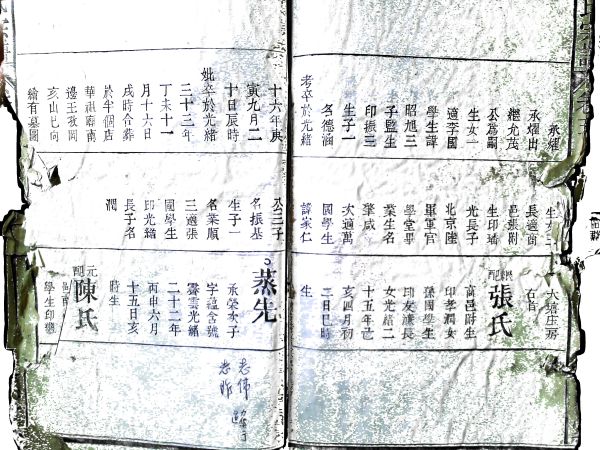 承燿
承燿出
繼允茂
公為嗣
生女一
適李國
學生諱
昭旭三
子監生
印振三
生子一
名德涵
考卒於光緒
十六年庚
寅九月二
十日辰時
妣卒於光緒
三十三年
丁未十一
月十六日
戌時合葬
於半個店
華祖廟南
邊王孜岡
亥山巳向
繪有墓圖
生女二
長適商
邑張附
生印璠
光長子
北京陸
軍軍官
學堂畢
業生名
肇咸
次適萬
國學生
諱家仁
公三子
名振基
生子一
名業順
三適張
國學生
印光緒
長子名
潤
大培庄房
右首
繼配張氏
商邑附生
印孝潤女
孫國學生
印友濂長
女光緒二
十五年己
亥四月初
二日巳時
生
蒸先
承榮次子
字蘊含號
霽雲光緒
二十二年
丙申六月
十五日亥
時生
元配陳氏
學生印
志偉